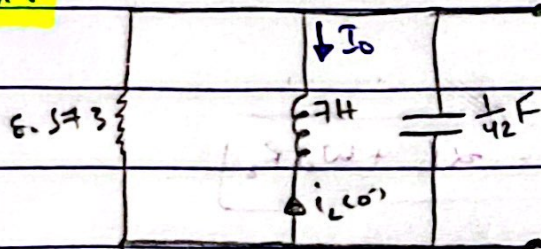 I₀
8.573
7H
1/42 F
i_L(0⁻)